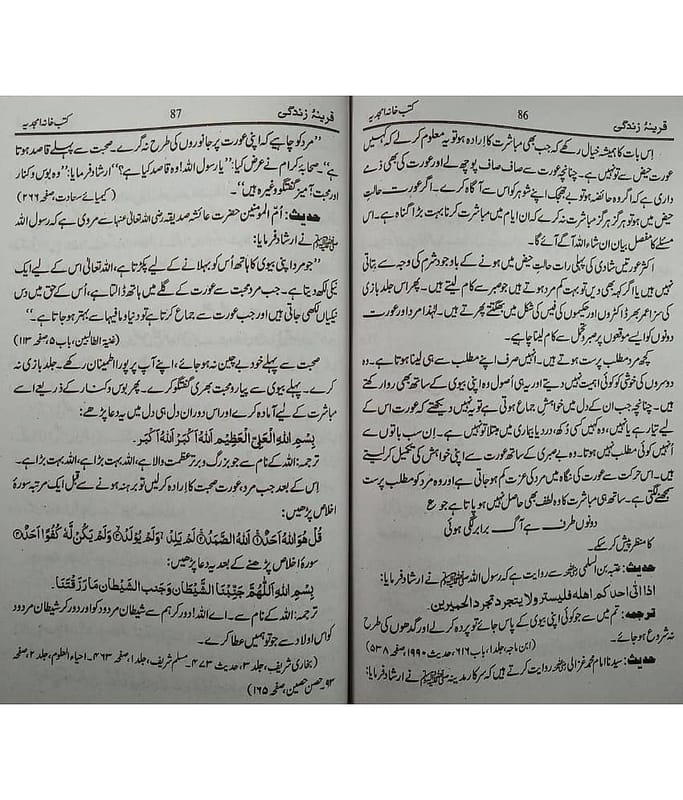 قرینۂ زندگی 86 کتب خانہ امجدیہ
اس بات کا ہمیشہ خیال رکھے کہ جب بھی مباشرت کا ارادہ ہو تو یہ معلوم کر لے کہ کہیں
عورت حیض سے تو نہیں ہے۔ چنانچہ عورت سے صاف صاف پوچھ لے اور عورت کی بھی ذمے
داری ہے کہ اگر وہ حائضہ ہو تو بے جھجک اپنے شوہر کو اس سے آگاہ کرے۔ اگر عورت حالتِ
حیض میں ہو تو ہرگز ہرگز مباشرت نہ کرے کہ ان ایام میں مباشرت کرنا بہت بڑا گناہ ہے۔ اس
مسئلے کا مفصل بیان ان شاء اللہ آگے آئے گا۔
اکثر عورتیں شادی کی پہلی رات حالتِ حیض میں ہونے کے باوجود شرم کی وجہ سے بتاتی
نہیں ہیں یا اگر کہہ بھی دیں تو بہت کم مرد ہوتے ہیں جو صبر سے کام لیتے ہیں۔ پھر اس جلد بازی
کی سزا عمر بھر ڈاکٹروں اور حکیموں کی فیس کی شکل میں بھگتتے پھرتے ہیں۔ لہٰذا مرد اور عورت
دونوں کو ایسے موقعوں پر صبر و تحمل سے کام لینا چاہیے۔
کچھ مرد مطلب پرست ہوتے ہیں۔ انہیں صرف اپنے مطلب سے ہی لینا ہوتا ہے۔ وہ
دوسروں کی خوشی کو کوئی اہمیت نہیں دیتے اور یہی اُصول وہ اپنی بیوی کے ساتھ بھی روا رکھتے
ہیں۔ چنانچہ جب ان کے دل میں خواہشِ جماع ہوتی ہے تو یہ نہیں دیکھتے کہ عورت اس کے
لیے تیار ہے یا نہیں، وہ کہیں کسی دُکھ، درد یا بیماری میں مبتلا تو نہیں ہے۔ اِن سب باتوں سے
اُنہیں کوئی مطلب نہیں ہوتا۔ وہ بے صبری کے ساتھ عورت سے اپنی خواہش کی تکمیل کر لیتے
ہیں۔ اس حرکت سے عورت کی نگاہ میں مرد کی عزت کم ہو جاتی ہے اور وہ مرد کو مطلب پرست
سمجھنے لگتی ہے۔ ساتھ ہی مباشرت کا وہ لطف بھی حاصل نہیں ہو پاتا ہے جو ع
دونوں طرف ہے آگ برابر لگی ہوئی
کا منظر پیش کر سکے۔
حدیث: عتبہ بن السلمی سے روایت ہے کہ رسول اللہ ﷺ نے ارشاد فرمایا:
اذا اتٰی احدکم اھلہ فلیستر ولا یتجرد تجرد الحمیرین.
ترجمہ: تم میں سے جو کوئی اپنی بیوی کے پاس جائے تو پردہ کر لے اور گدھوں کی طرح
نہ شروع ہو جائے۔ (ابن ماجہ، جلد ۱، باب ۶۱۶، حدیث ۱۹۹۰، صفحہ ۵۳۸)
حدیث: سیدنا امام محمد غزالی روایت کرتے ہیں کہ سرکارِ مدینہ ﷺ نے ارشاد فرمایا:
قرینۂ زندگی 87 کتب خانہ امجدیہ
”مرد کو چاہیے کہ اپنی عورت پر جانوروں کی طرح نہ گرے۔ صحبت سے پہلے قاصد ہوتا
ہے“۔ صحابۂ کرام نے عرض کیا: ”یا رسول اللہ! وہ قاصد کیا ہے؟“ ارشاد فرمایا: ”وہ بوس و کنار
اور محبت آمیز گفتگو وغیرہ ہیں“۔ (کیمیائے سعادت، صفحہ ۲۶۶)
حدیث: اُمّ المومنین حضرت عائشہ صدیقہ رضی اللہ تعالیٰ عنہا سے مروی ہے کہ رسول اللہ
ﷺ نے ارشاد فرمایا:
”جو مرد اپنی بیوی کا ہاتھ اُس کو بہلانے کے لیے پکڑتا ہے، اللہ تعالیٰ اس کے لیے ایک
نیکی لکھ دیتا ہے۔ جب مرد محبت سے عورت کے گلے میں ہاتھ ڈالتا ہے، اُس کے حق میں دس
نیکیاں لکھی جاتی ہیں اور جب عورت سے جماع کرتا ہے تو دنیا و مافیہا سے بہتر ہو جاتا ہے۔“
(غنیۃ الطالبین، باب ۵، صفحہ ۱۱۳)
صحبت سے پہلے خود بے چین نہ ہو جائے، اپنے آپ پر پورا اطمینان رکھے۔ جلد بازی نہ
کرے۔ پہلے بیوی سے پیار و محبت بھری گفتگو کرے۔ پھر بوس و کنار کے ذریعے اسے
مباشرت کے لیے آمادہ کرے اور اس دوران دل ہی دل میں یہ دعا پڑھے:
بِسْمِ اللهِ الْعَلِيِّ الْعَظِيْمِ اَللهُ اَكْبَرُ اَللهُ اَكْبَرُ.
ترجمہ: اللہ کے نام سے جو بزرگ و برتر عظمت والا ہے، اللہ بہت بڑا ہے، اللہ بہت بڑا ہے۔
اِس کے بعد جب مرد عورت صحبت کا ارادہ کر لیں تو برہنہ ہونے سے قبل ایک مرتبہ سورۂ
اخلاص پڑھیں:
قُلْ هُوَ اللهُ اَحَدٌ ۚ اَللهُ الصَّمَدُ ۚ لَمْ يَلِدْ ۙ وَلَمْ يُوْلَدْ ۙ وَلَمْ يَكُنْ لَّهٗ كُفُوًا اَحَدٌ
سورۂ اخلاص پڑھنے کے بعد یہ دعا پڑھیں:
بِسْمِ اللهِ اَللّٰهُمَّ جَنِّبْنَا الشَّيْطَانَ وَجَنِّبِ الشَّيْطَانَ مَا رَزَقْتَنَا.
ترجمہ: اللہ کے نام سے۔ اے اللہ! دور کر ہم سے شیطان مردود کو اور دور کر شیطان مردود
کو اس اولاد سے جو تو ہمیں عطا کرے۔
(بخاری شریف، جلد ۳، حدیث ۴۷۳۔ مسلم شریف، جلد ۱، صفحہ ۴۶۳۔ احیاء العلوم، جلد ۲، صفحہ
۹۳۔ حصن حصین، صفحہ ۱۶۵)